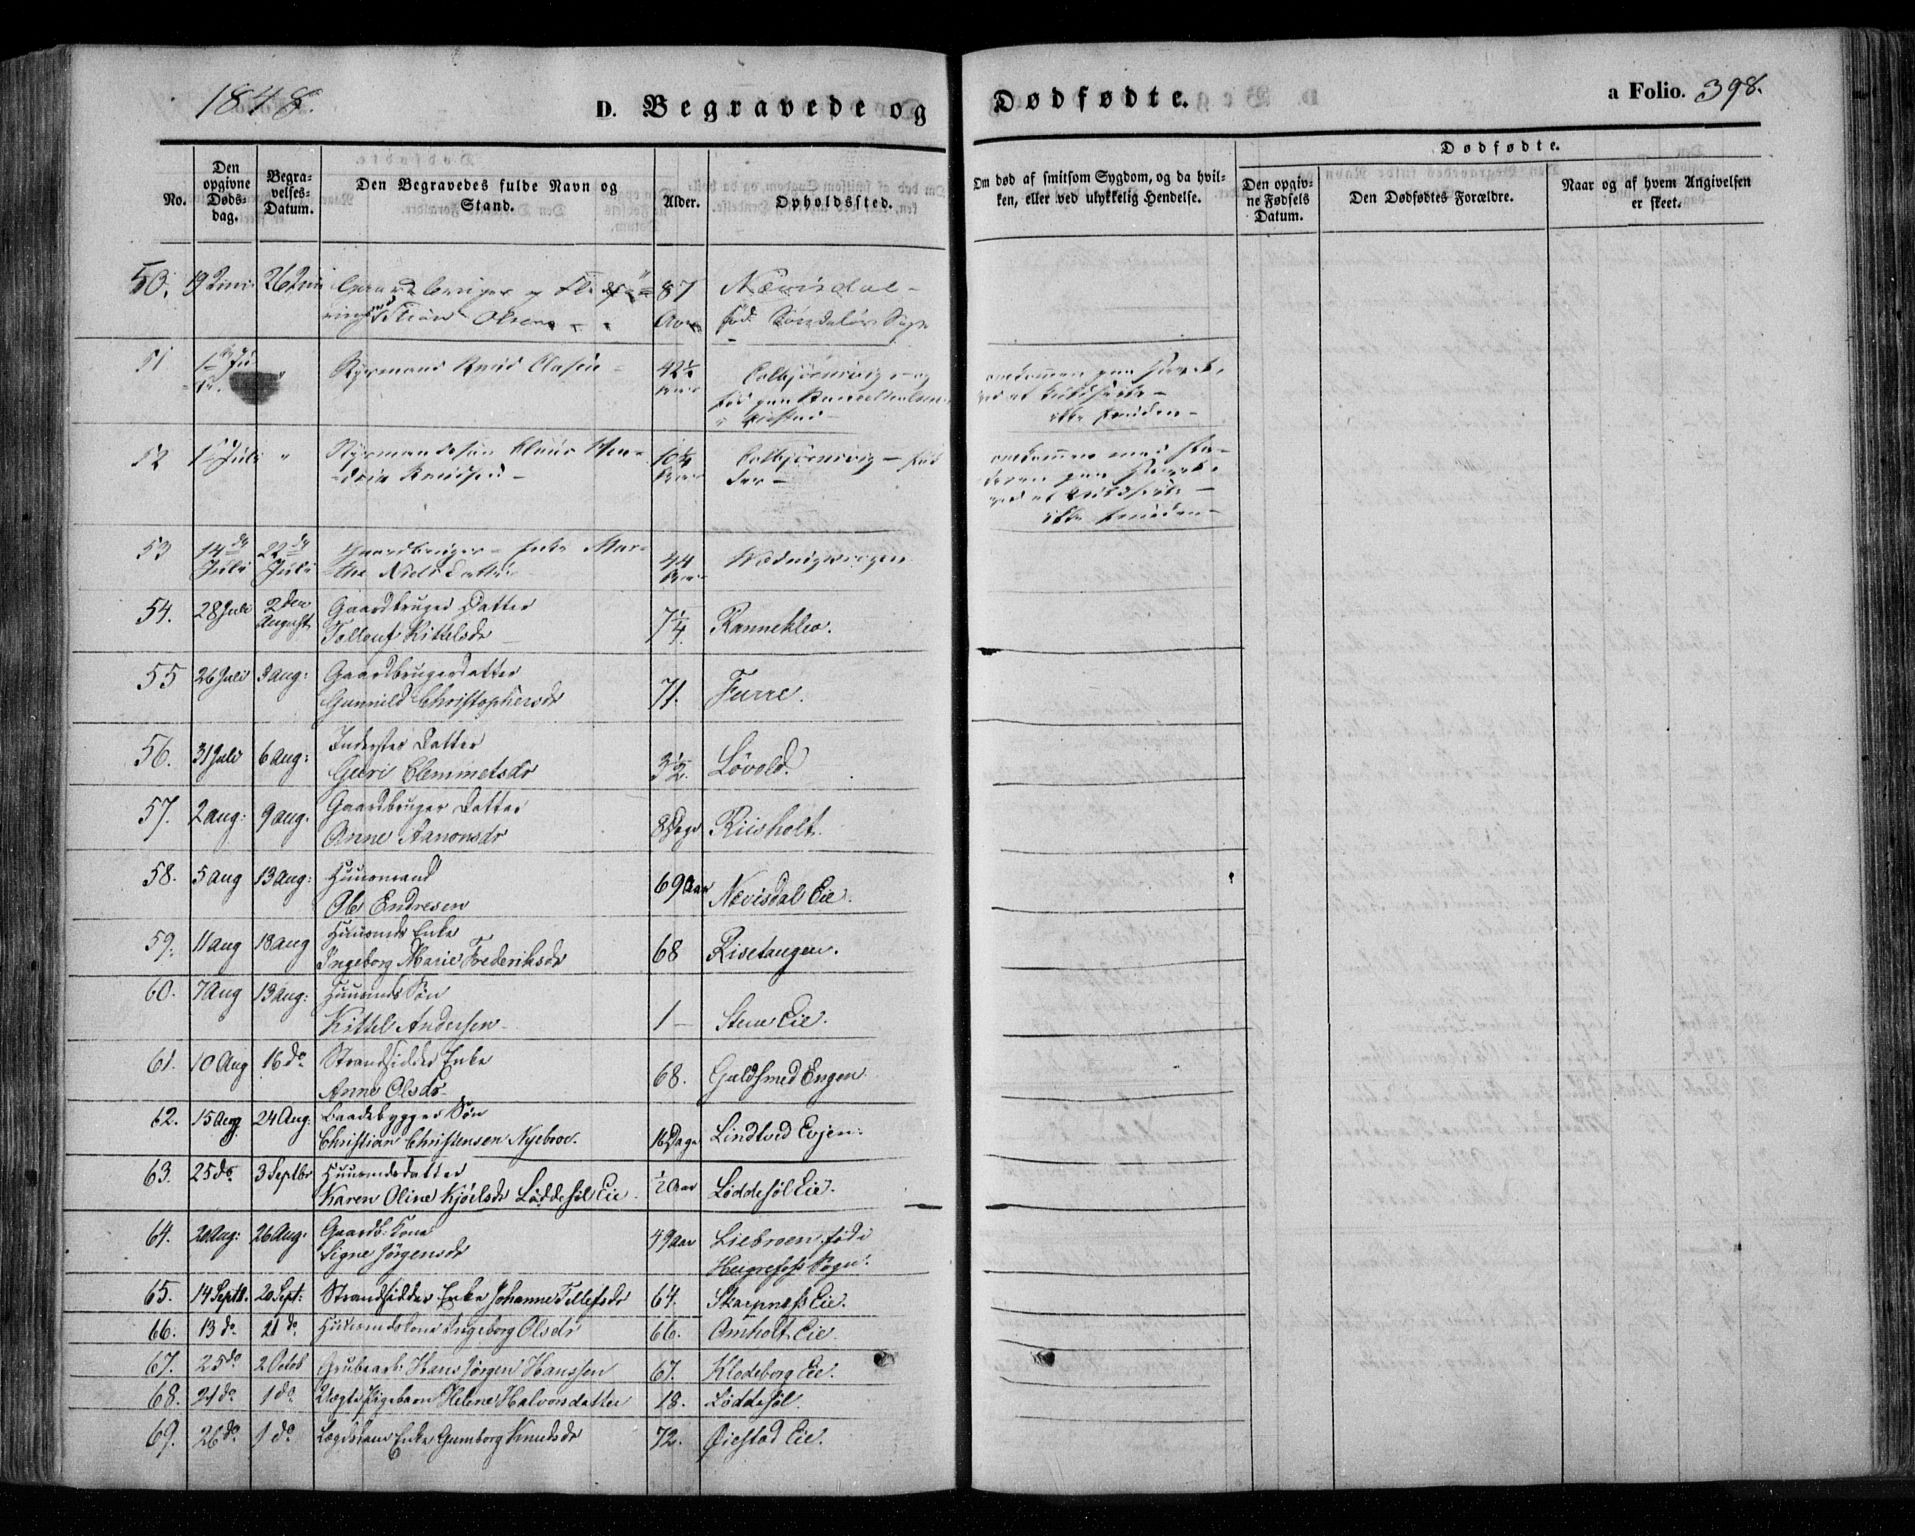 1848.
D. Begravede og Dødfødte.
a Folio. 398.
No.
Den opgivne Døds-dag.
Begra-velses-Datum.
Den Begravedes fulde Navn og Stand.
Alder.
Opholdssted.
Om død af smitsom Sygdom, og da hvil-ken, eller ved ulykkelig Hendelse.
Dødfødte.
Den opgiv-ne Fødsels Datum.
Den Dødfødtes Forældre.
Naar og af hvem Angivelsen er skeet.
50. 19 Juni 26 Juni Gaardbruger og
Olsen 87 Aar Nævisdal
fød
51 Juli " Knud Olasen 42½ Aar Colbjørnsvig og
fød paa
omkommen paa
ved at
ikke funden
52 Juli " 10¼ Aar Colbjørnsvig fød
der
omkommen med
paa
ved at
ikke funden
53 14de Juli 22de Juli Gaardbruger Enke Mar-
the Nielsdatter 44 Aar
54. 28 Juli 2den August Gaardbruger Datter
Tollouf Kittelsdr 7¼ Rannekleo.
55 26 Juli 3 Aug: Gaardbrugerdatter
Gunnild Christophersdr 71. Furre.
56. 31 Juli 6 Aug: Inderster Datter
Guri Clemmetsdr 3½. Løvold.
57. 2 Aug: 9 Aug. Gaardbruger Datter
Anne Aanonsdr 8 Dage Riisholt.
58. 5 Aug 13 Aug: Huusmand
Ole Endresen 69 Aar Nævisdal Eie.
59. 11 Aug 18 Aug Huusmds Enke
Ingeborg Marie Frederiksdr 68 Risetangen.
60. 7 Aug 13 Aug: Huusmds Søn
Kittel Andersen 1 — Steue Eie.
61. 10 Aug 16 do Strandsidder Enke
Anne Olsdr 68. Guldsmed Engen
62. 15 Aug 24 Aug: Baadebygger Søn
Christian Christensen Nyebroe. 16 Dage Lindtved Evjen.
63. 25 do 3 Septbr Huusmdsdatter
Karen Oline Kjøelsdr Løddesøl Eie. ½ Aar Løddesøl Eie.
64. 20 Aug: 26 Aug: Gaardb. Kone
Signe Jørgensdr 49 Aar Liebroen født
Heirefoss Sogn.
65. 14 Septb. 20 Sept: Strandsidder Enke Johanne Tellefsdr 64. Skarpnæss Eie.
66. 13 do 21 do Huusmdskone Ingeborg Olsdr 66. Omholt Eie.
67. 25 do 2 Octob Grubearb: Hans Jørgen Hanssen 67. Klodeborg Eie.
68. 21 do 1 do Helene Halvorsdatter 18. Løddesøl.
69. 26 do 1 do Lægdslem Enke Gumborg Knudsdr 72. Øiestad Eie.